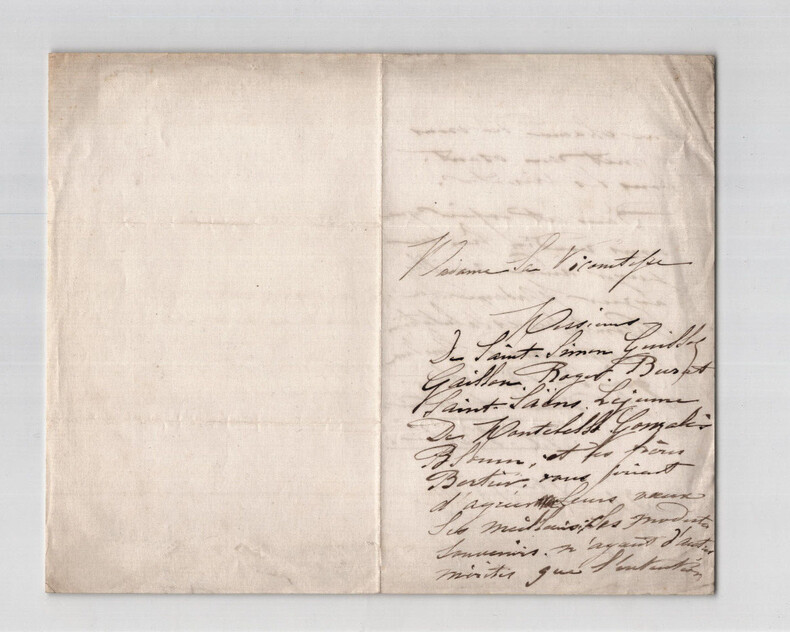 Madame La Vicomtesse
Messieurs
De Saint-Simon
Gaillon, Roger, Burat
Saint-Saëns, Lejeune
De Gonzalès
Bloum, et les frères
Bertier, vous prient
d'agréer leurs vœux
les meilleurs, ces modestes
souvenirs n'ayant d'autres
mérites que l'intention